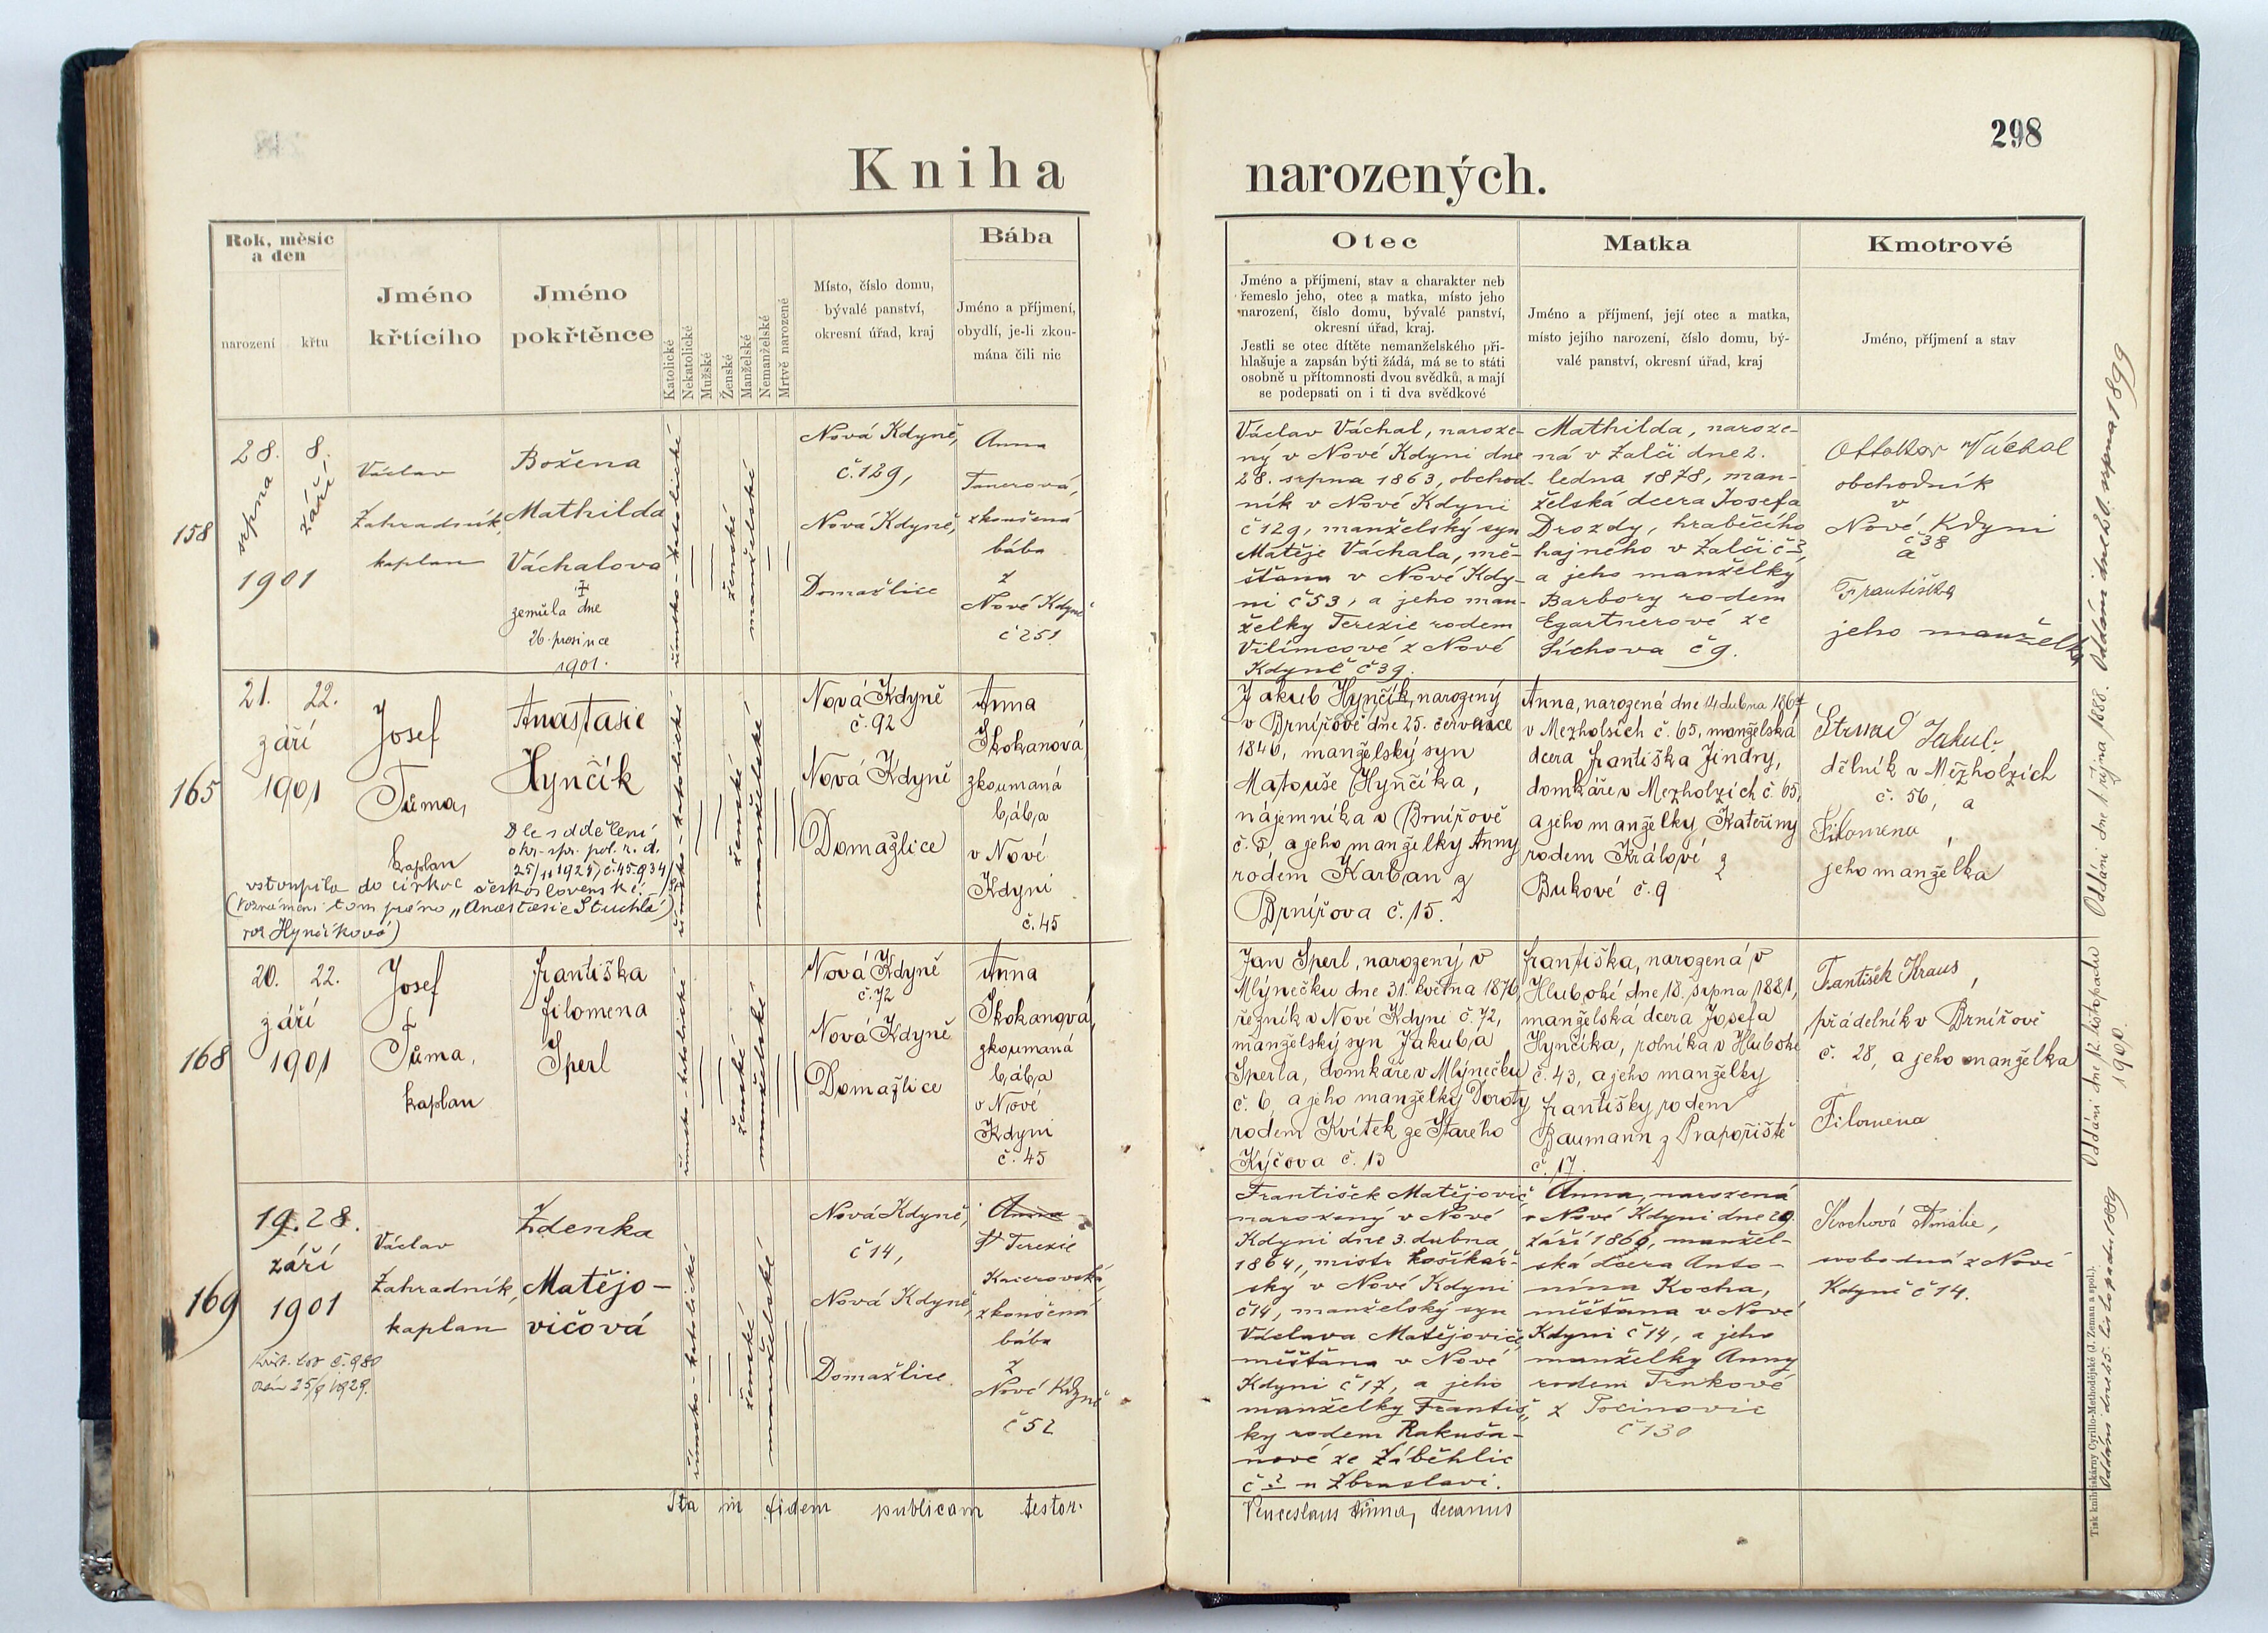 298
Kniha narozených.
Rok, měsíc
a den
narození
křtu
Jméno
křtícího
Jméno
pokřtěnce
Katolické
Nekatolické
Mužské
Ženské
Manželské
Nemanželské
Mrtvě narozené
Místo, číslo domu,
bývalé panství,
okresní úřad, kraj
Bába
Jméno a příjmení,
obydlí, je-li zkou-
mána čili nic
Otec
Jméno a příjmení, stav a charakter neb
řemeslo jeho, otec a matka, místo jeho
narození, číslo domu, bývalé panství,
okresní úřad, kraj.
Jestli se otec dítěte nemanželského při-
hlašuje a zapsán býti žádá, má se to státi
osobně u přítomnosti dvou svědků, a mají
se podepsati on i ti dva svědkové
Matka
Jméno a příjmení, její otec a matka,
místo jejího narození, číslo domu, bý-
valé panství, okresní úřad, kraj
Kmotrové
Jméno, příjmení a stav
158
28. 8.
srpna září
1901
Václav
Zahradník,
kaplan
Božena
Mathilda
Váchalova
zemřela dne
26. prosince
1901.
římsko-katolické
ženské
manželské
Nová Kdyně,
č. 129,
Nová Kdyně,
Domažlice
Anna
Tanerová,
zkoušená
bába
z
Nové Kdyně
č 251
Václav Váchal, naroze-
ný v Nové Kdyni dne
28. srpna 1863, obchod-
ník v Nové Kdyni
č 129, manželský syn
Matěje Váchala, mě-
šťana v Nové Kdy-
ni č 53, a jeho man-
želky Terezie rodem
Vilímcové z Nové
Kdyně č 39.
Mathilda, naroze-
ná v Žalči dne 2.
ledna 1878, man-
želská dcera Josefa
Drozdy, hraběcího
hajného v Žalči č ?,
a jeho manželky
Barbory rodem
Egartnerové ze
Síchova č 9.
Ottokar Váchal
obchodník
v
Nové Kdyni
č 38
a
Františka
jeho manželka
Oddáni dne 20. srpna 1899
165
21. 22.
září
1901
Josef
Tůma,
kaplan
Anastasie
Hynčík
Dle sdělení
okr. spr. pol. z d.
25/11 1925, č. 45.934
vstoupila do církve československé.
(Poznámení tom psáno „Anastasie Stuchlá
roz Hynčíková)
římsko-katolické
ženské
manželské
Nová Kdyně
č. 92
Nová Kdyně
Domažlice
Anna
Skokanová,
zkoumaná
bába
v Nové
Kdyni
č. 45
Jakub Hynčík, narozený
v Brnířově dne 25. července
1846, manželský syn
Matouše Hynčíka,
nájemníka v Brnířově
č. 5, a jeho manželky Anny
rodem Karban z
Brnířova č. 15.
Anna, narozená dne 14 dubna 1864
v Mezholsích č. 65, manželská
dcera Františka Jindry,
domkáře v Mezholzích č. 65,
a jeho manželky Kateřiny
rodem Králové z
Bukové č. 9
Strnad Jakub,
dělník v Mezholzích
č. 56, a
Filomena,
jeho manželka
Oddáni dne 1. října 1888.
168
20. 22.
září
1901
Josef
Tůma,
kaplan
Františka
Filomena
Sperl
římsko-katolické
ženské
manželské
Nová Kdyně
č. 72
Nová Kdyně
Domažlice
Anna
Skokanová,
zkoumaná
bába
v Nové
Kdyni
č. 45
Jan Sperl, narozený v
Mlýnečku dne 31. května 1876,
řezník v Nové Kdyni č. 72,
manželský syn Jakuba
Sperla, domkáře v Mlýnečku
č. 6 a jeho manželky Doroty
rodem Kvítek ze Starého
Kýčova č. 13
Františka, narozená v
Hluboké dne 18. srpna 1881,
manželská dcera Josefa
Hynčíka, rolníka v Hluboké
č. 43, a jeho manželky
Františky rodem
Baumann z Prapořiště
č. 17.
František Kraus,
přádelník v Brnířově
č. 28, a jeho manželka
Filomena
Oddáni dne 12. listopadu
1900.
169
19. 28.
září
1901
Křest. list č. 980
dán 25/9 1929.
Václav
Zahradník,
kaplan
Zdenka
Matějo-
vičová
římsko-katolické
ženské
manželské
Nová Kdyně,
č 14,
Nová Kdyně,
Domažlice
Anna
Terezie
zkoušená
bába
z
Nové Kdyně
č 52
František Matějovič
narozený v Nové
Kdyni dne 3. dubna
1864, mistr košíkář-
ský v Nové Kdyni
č 14, manželský syn
Václava Matějoviče,
měšťana v Nové
Kdyni č 17, a jeho
manželky Františ-
ky rodem Rakuša-
nové ze Záběhlic
č ? u Zbraslavi.
Anna, narozená
v Nové Kdyni dne 29.
září 1866, manžel-
ská dcera Anto-
nína Kocha,
měšťana v Nové
Kdyni č 14, a jeho
manželky Anny
rodem Trnkové
z Pocinovic
č 130
Kochová Amálie,
svobodná z Nové
Kdyně č 14.
Oddáni dne 25. listopadu 1889
Ita in fidem publicam testor.
Venceslaus Tůma, decanus
Tisk knihtiskárny Cyrillo-Methodějské (J. Zeman a spol.).